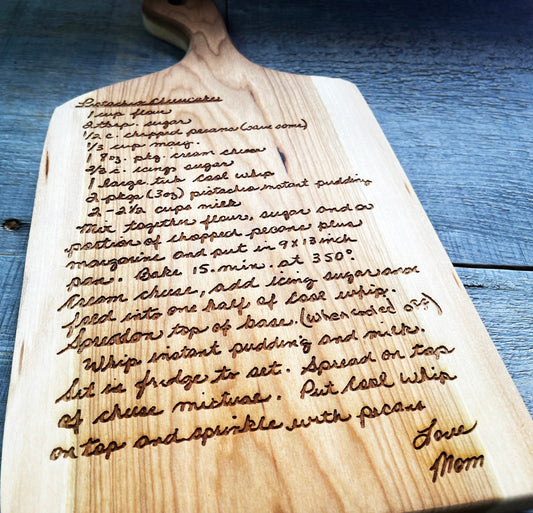 Pistachio Cheesecake
1 cup flour
2 tbsp. sugar
1/2 c. chopped pecans (save some)
1/3 cup marg.
1 8oz. pkg. cream cheese
2/3 c. icing sugar
1 large tub cool whip
2 pkgs (3oz) pistachio instant pudding
2 - 2 1/2 cups milk
Mix together flour, sugar and a
portion of chopped pecans plus
margarine and put in 9x13 inch
pan. Bake 15. min. at 350°.
Cream cheese, add icing sugar and
fold into one half of cool whip.
Spread on top of base. (When cooled off)
Whip instant pudding and milk.
Set in fridge to set. Spread on top
of cheese mixture. Put cool whip
on top and sprinkle with pecans
Love
Mom